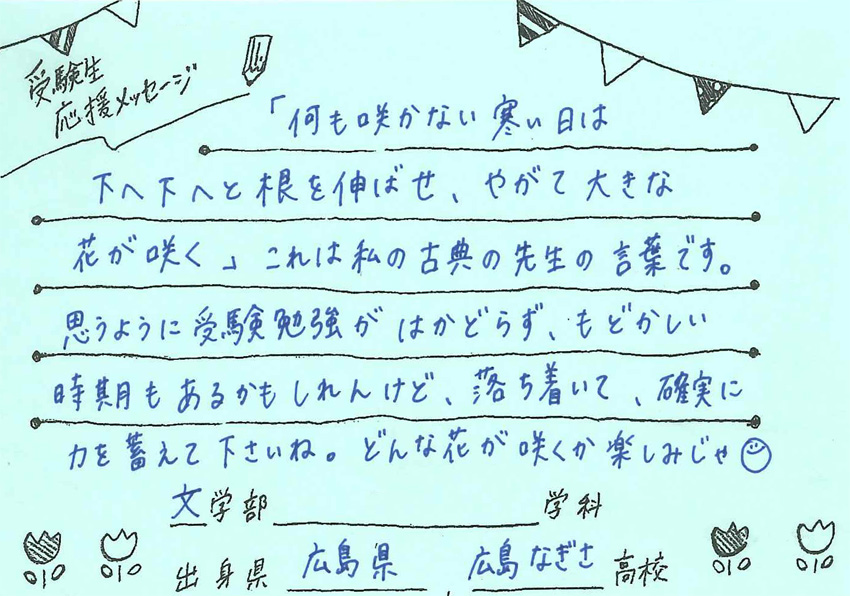 受験生
応援メッセージ
「何も咲かない寒い日は
下へ下へと根を伸ばせ、やがて大きな
花が咲く」これは私の古典の先生の言葉です。
思うように受験勉強がはかどらず、もどかしい
時期もあるかもしれんけど、落ち着いて、確実に
力を蓄えて下さいね。どんな花が咲くか楽しみじゃ
文学部 学科
出身県 広島県 広島なぎさ高校